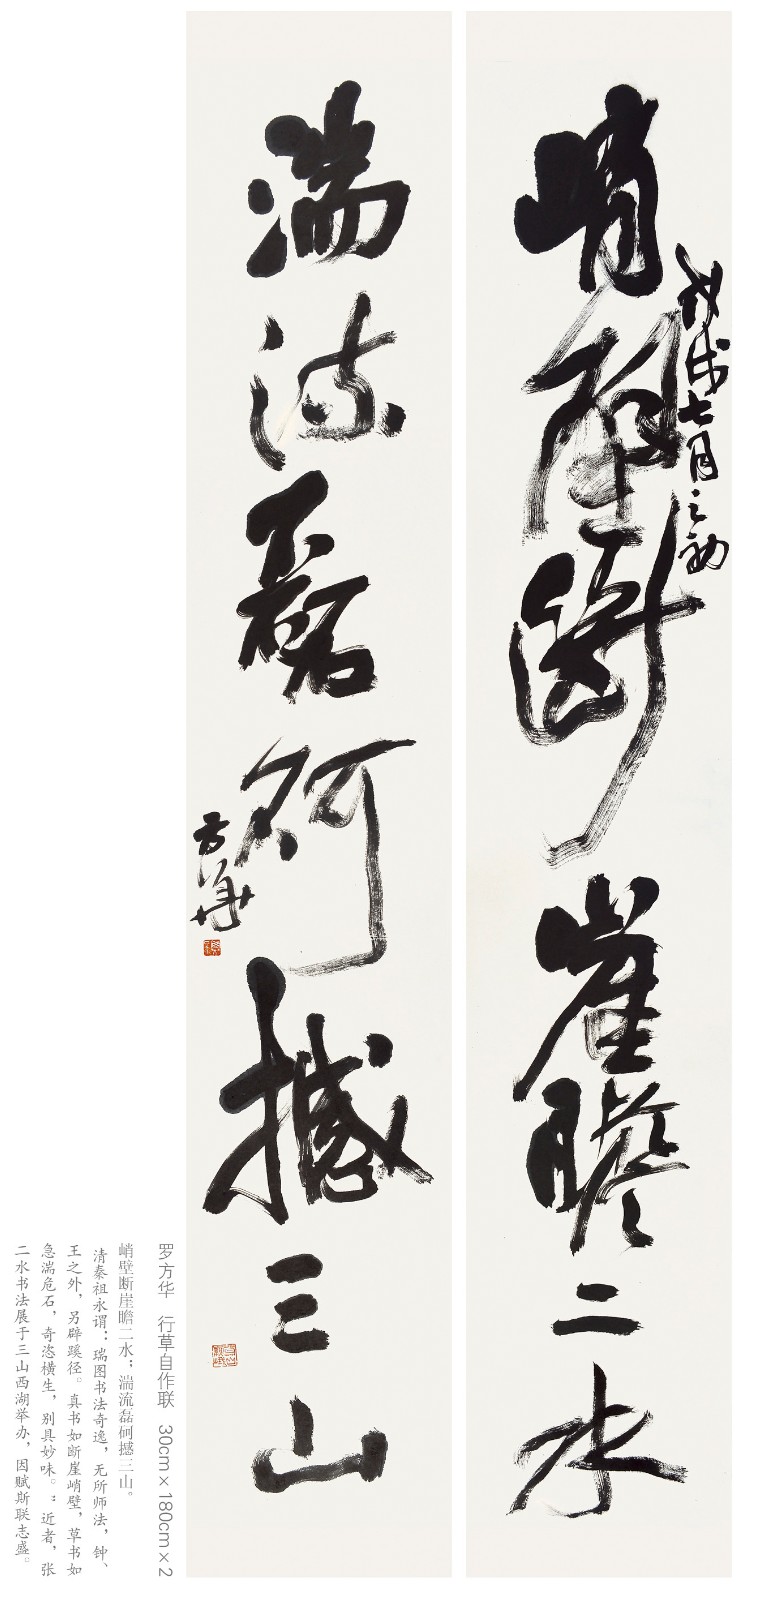 戊戌七月之初
峭壁断崖瞻二水
湍流磊砢撼三山
方华
罗方华 行草自作联 30cm×180cm×2
峭壁断崖瞻二水；湍流磊砢撼三山。
清秦祖永谓：瑞图书法奇逸，无所师法，钟、
王之外，另辟蹊径。真书如断崖峭壁，草书如
急湍危石，奇恣横生，别具妙味。”近者，张
二水书法展于三山西湖举办，因赋斯联志盛。